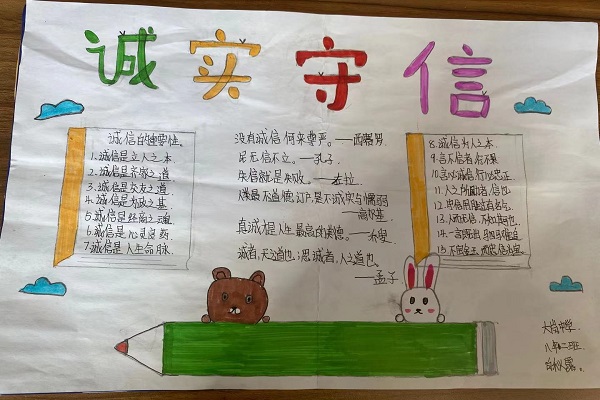 诚实守信
诚信的重要性。
1.诚信是立人之本
2.诚信是齐家之道
3.诚信是交友之道
4.诚信是为政之基
5.诚信是经商之魂
6.诚信是心灵良药
7.诚信是人生命脉.
没有诚信何来尊严。——西塞罗
民无信不立。——孔子.
失信就是失败。——左拉
——高尔基
真诚是人生最高的美德。——乔叟
诚者,天之道也;思诚者,人之道也。
——孟子
8.诚信为人之本
9.言不信者行不果
10.言必诚信行必忠正
11.人之所助者,信也
13.人而无信,不知其可也.
14.一言既出驷马难追
八年二班